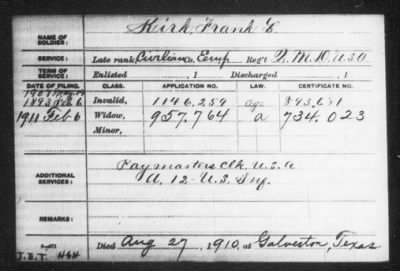 NAME OF SOLDIER: Kirk, Frank L.
SERVICE: Late rank, Civilian Co. Emp Reg't Q. M. D. U.S.A
TERM OF SERVICE: Enlisted , 1 Discharged , 1
DATE OF FILING. CLASS. APPLICATION NO. LAW. CERTIFICATE NO.
1907
1893 Feb 6 Invalid, 1146,259
1911 Feb 6 Widow, 957,764 a 734,023
Minor,
ADDITIONAL SERVICES: Paymasters Clk. U.S.A
A, 12-U.S. Inf.
REMARKS:
J.E.T.
Died Aug 27, 1910, at Galveston, Texas